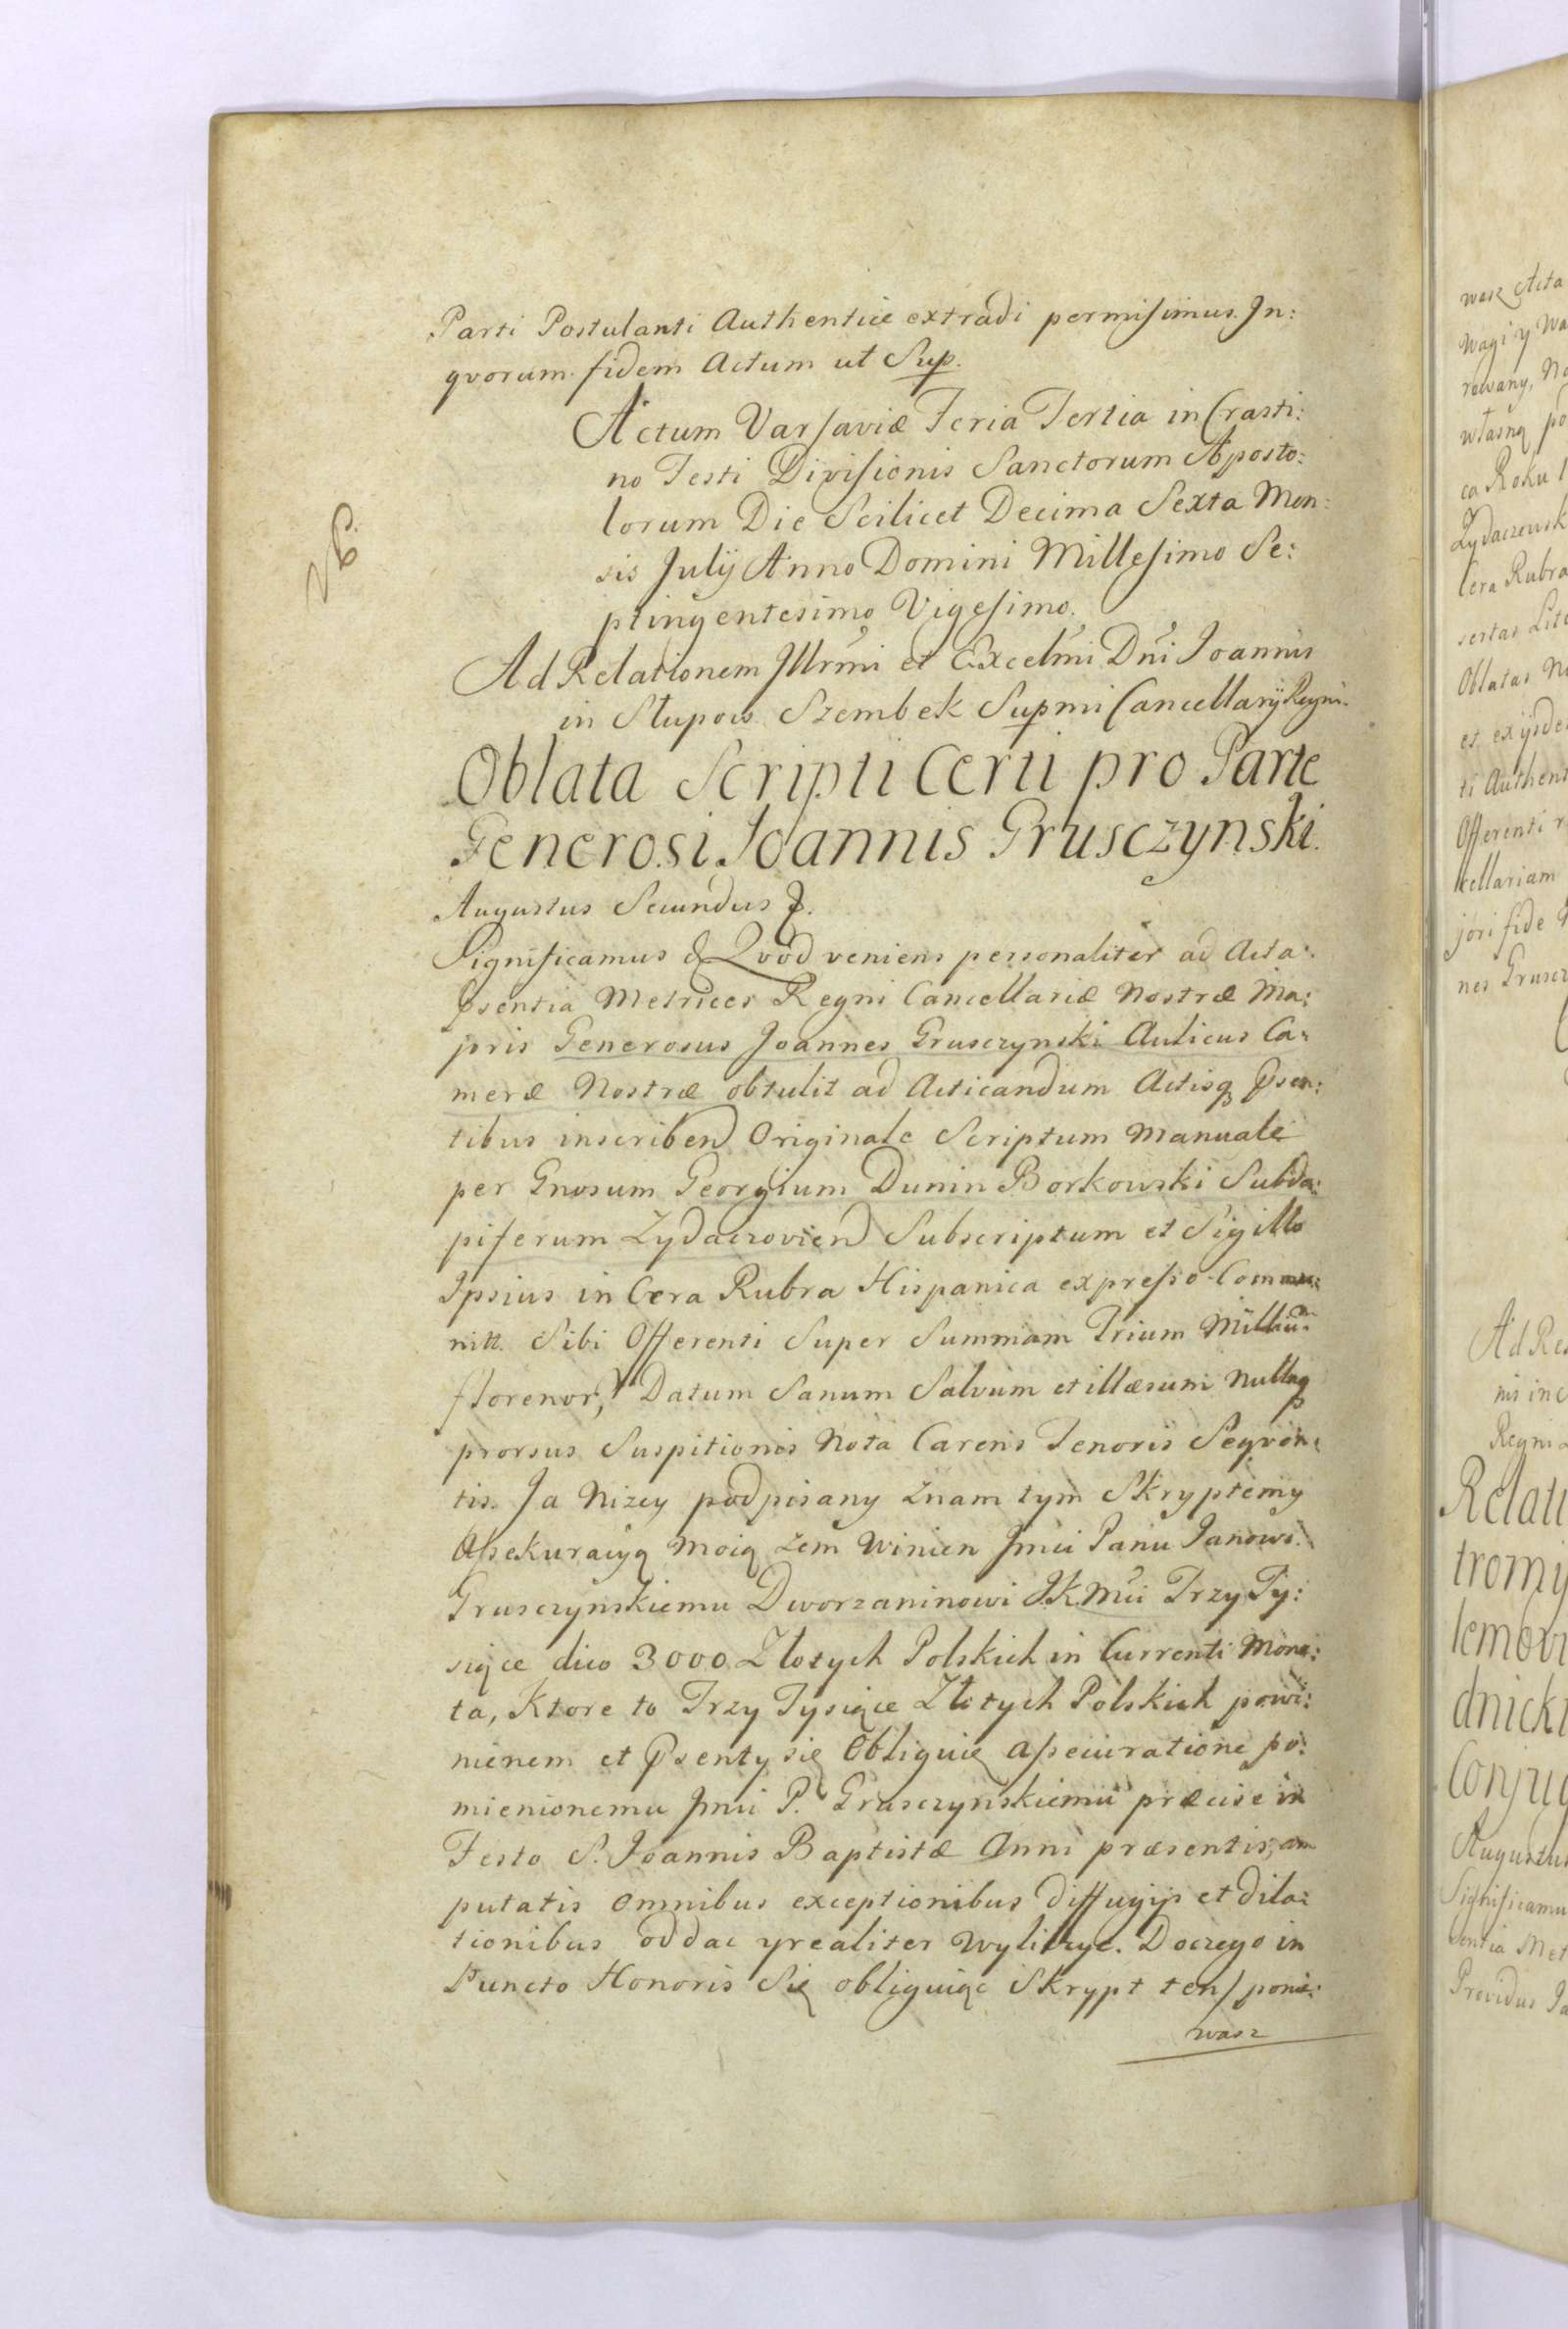 Parti Postulanti Authentice extradi permisimus. In:
qvorum fidem Actum ut Sup.
Actum Varsaviæ Feria Tertia in Crasti:
no Festi Divisionis Sanctorum Aposto:
lorum Die Scilicet Decima Sexta Men:
sis Julij Anno Domini Millesimo Se:
ptingentesimo Vigesimo.
Ad Relationem Illrmi et Excelmi Dni Joannis
in Słupow Szembek Supmi Cancellarij Regni.
Oblata Scripti Certi pro Parte
Generosi Joannis Grusczynski.
Augustus Secundus
Significamus & Qvod veniens personaliter ad Acta
Psentia Metrices Regni Cancellariæ Nostræ Ma:
joris Generosus Joannes Grusczynski Aulicus Ca:
meræ Nostræ obtulit ad Acticandum Actisq Psen:
tibus inscribend Originale Scriptum Manuale
per Gnosum Georgium Dunin Borkowski Subda:
piferum Zydaczovien Subscriptum et Sigillo
Ipsius in Cera Rubra Hispanica expresso Commu:
nitt. Sibi Offerenti Super Summam Trium Milliu
florenor, Datum Sanum Salvum et illæsum Nullaq
prorsus Suspitionis Nota Carens Tenoris Seqven:
tis. Ja Nizey podpisany Znam tym Skryptem y
Assekuracyą Moią zem Winien Jmci Panu Janowi
Grusczynskiemu Dworzaninowi J.K.Mci Trzy Ty:
siące dico 3000 Złotych Polskich in Currenti Mone:
ta, Ktore to Trzy Tysiące Złotych Polskich powi:
nienem et Psenty się Obliguię assecuratione po:
mienionemu Jmci P. Grusczynskiemu præcise in
Festo S. Joannis Baptistæ Anni præsentis, am
putatis omnibus exceptionibus diffugijs et dila:
tionibus oddac y realiter Wyliczyc. Doczego in
Puncto Honoris Się obliguiąc Skrypt ten / ponie:
wasz
wasz Acta
Wagi y Wa
rowany, No
własną po
ca Roku 1
Zydaczowsk
Cera Rubra
sertas Lite
Oblatas
et exijsde
ti Authent
Offerenti r
cellariam
jori fide
nes Grusz
Ad Re
nis in
Regni
Relati
tromij
lemovi
dnicki
Conjug
Augustus
Significamu
sentia Met
Providus Ja